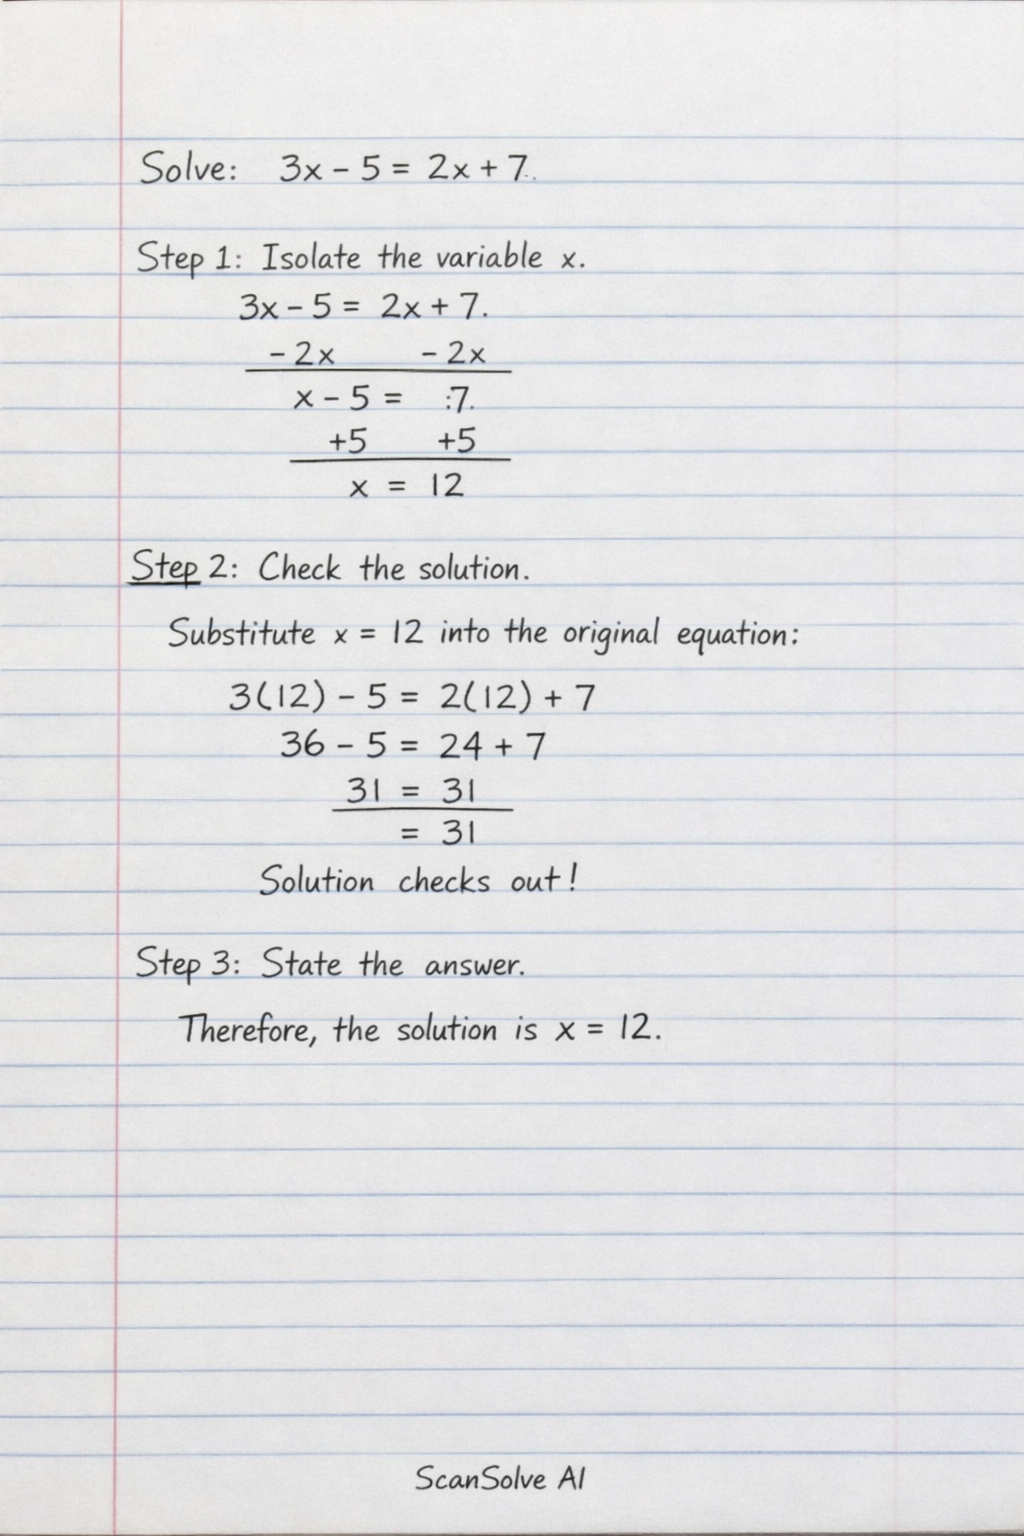 Solve: 3x - 5 = 2x + 7.
Step 1: Isolate the variable x.
3x - 5 = 2x + 7.
- 2x - 2x
x - 5 = :7.
+5 +5
x = 12
Step 2: Check the solution.
Substitute x = 12 into the original equation:
3(12) - 5 = 2(12) + 7
36 - 5 = 24 + 7
31 = 31
= 31
Solution checks out!
Step 3: State the answer.
Therefore, the solution is x = 12.
ScanSolve AI